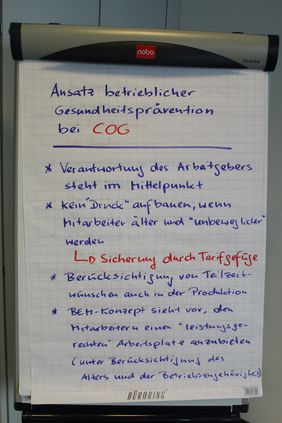 nobo
Piranha
Ansatz betrieblicher
Gesundheitsprävention
bei COG
* Verantwortung des Arbeitgebers
steht im Mittelpunkt
* Kein "Druck" aufbauen, wenn
Mitarbeiter älter und "unbeweglicher"
werden
↳ Sicherung durch Tarifgefüge
* Berücksichtigung von Teilzeit-
wünschen auch in der Produktion
* BEM-Konzept sieht vor, den
Mitarbeitern einen "leistungsge-
rechten" Arbeitsplatz anzubieten
(unter Berücksichtigung des
Alters und der Betriebszugehörigkeit)
BÜRORING